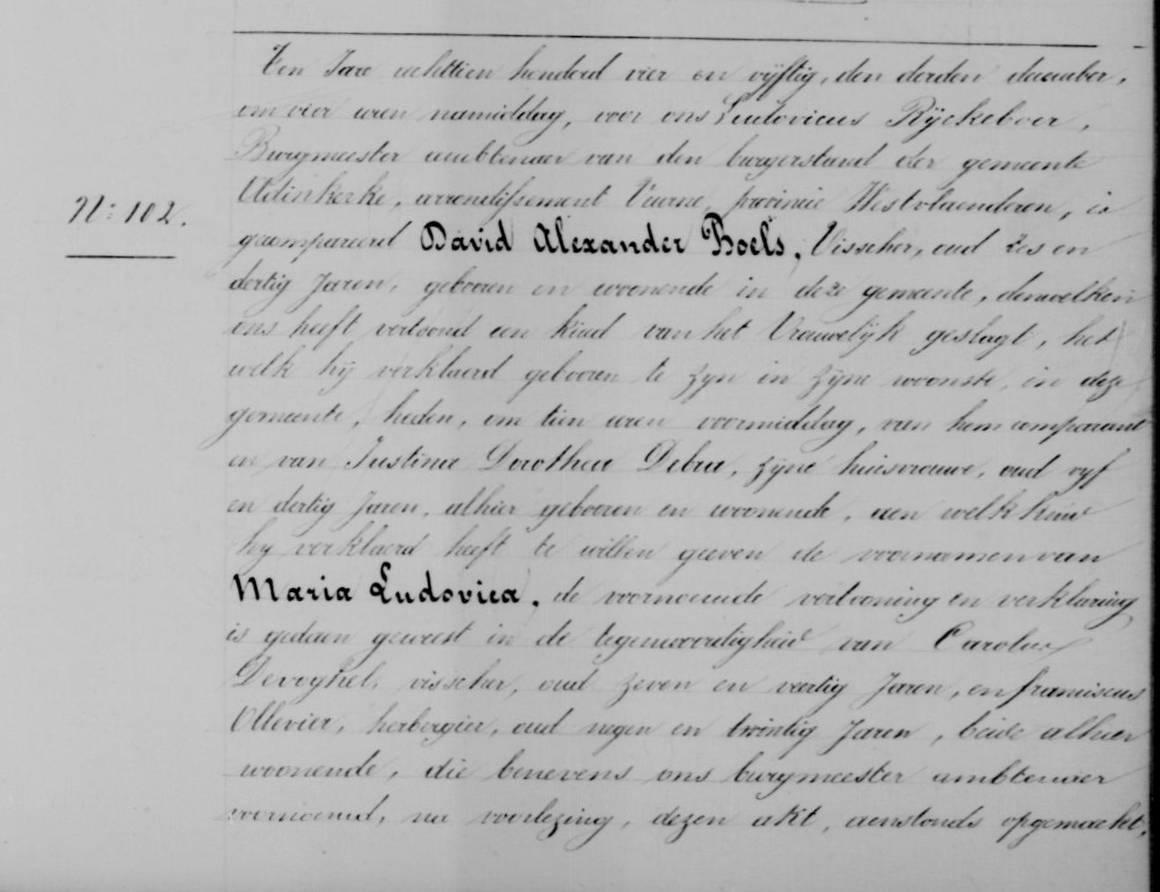 Ten Jare achttien honderd vier en vyftig, den derden december,
om vier uren namiddag, voor ons Ludovicus Rÿckeboer,
Burgmeester ambtenaer van den burgerstand der gemeente
Adinkerke, arrondissement Veurne, provincie Westvlaenderen, is
N: 102.
gecompareerd David Alexander Boels, Visscher, oud zes en
dertig Jaren, gebooren en woonende in deze gemeente, denwelken
ons heeft vertoond een kind van het Vrauwelÿk geslagt, het
welk hÿ verklaerd gebooren te zyn in zÿne woonste, in deze
gemeente, heden, om tien uren voormiddag, van hem comparant
en van Justina Dorothea Debra, zÿne huisvrouwe, oud vyf
en dertig Jaren, alhier gebooren en woonende, aen welk kind
hy verklaerd heeft te willen geeven de voornamen van
Maria Ludovica, de voornoemde vertooning en verklaring
is gedaen geweest in de tegenwoordigheid van Carolus
Devoghel, visscher, oud zeven en veertig Jaren, en franciscus
Ollevier, herbergier, oud negen en twintig Jaren, beide alhier
woonende, die benevens ons burgmeester ambtenaer
voornoemd, na voorlezing, dezen akt, aenstonds opgemaekt,